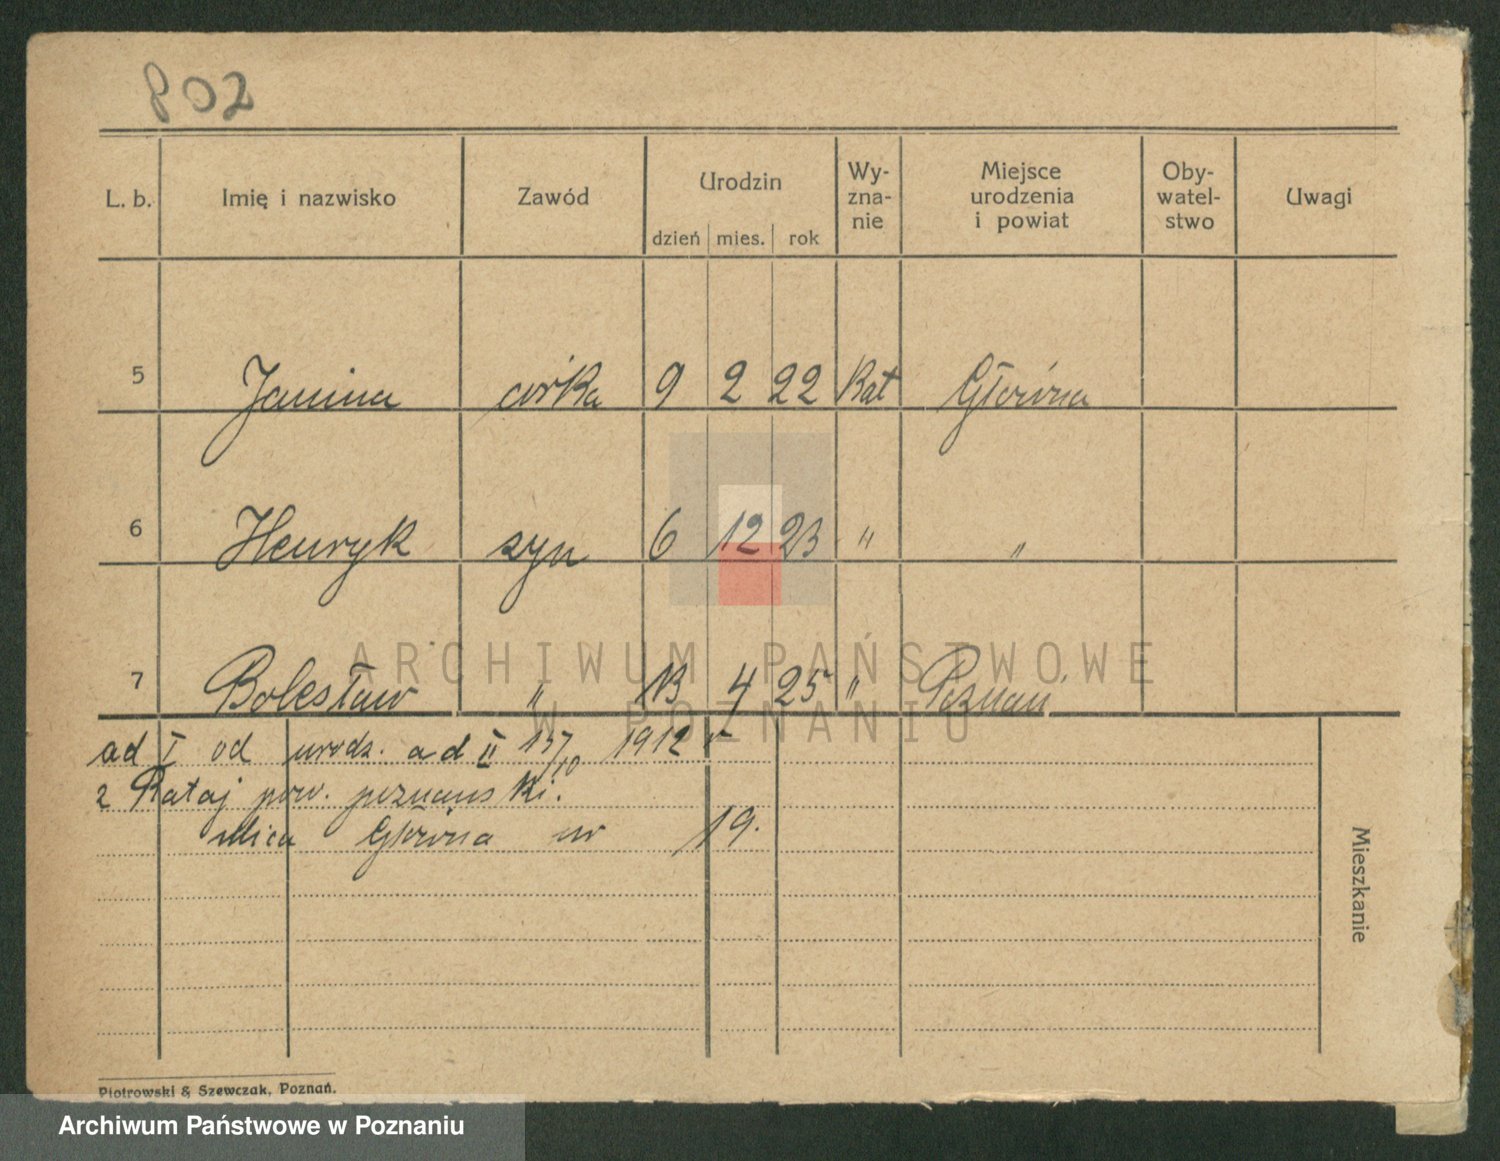 802
L. b. Imię i nazwisko Zawód Urodzin Wy-zna-nie Miejsce urodzenia i powiat Oby-watel-stwo Uwagi
dzień mies. rok
5 Janina córka 9 2 22 Kat Główna
6 Henryk syn 6 12 23 " "
7 Bolesław " 13 4 25 " Poznań
ad I od urodz. ad II 15/10 1912 r
z Rataj pow. poznanski.
ulica Główna nr 19.
Mieszkanie
Piotrowski & Szewczak, Poznań.
ARCHIWUM PAŃSTWOWE
W POZNANIU
Archiwum Państwowe w Poznaniu